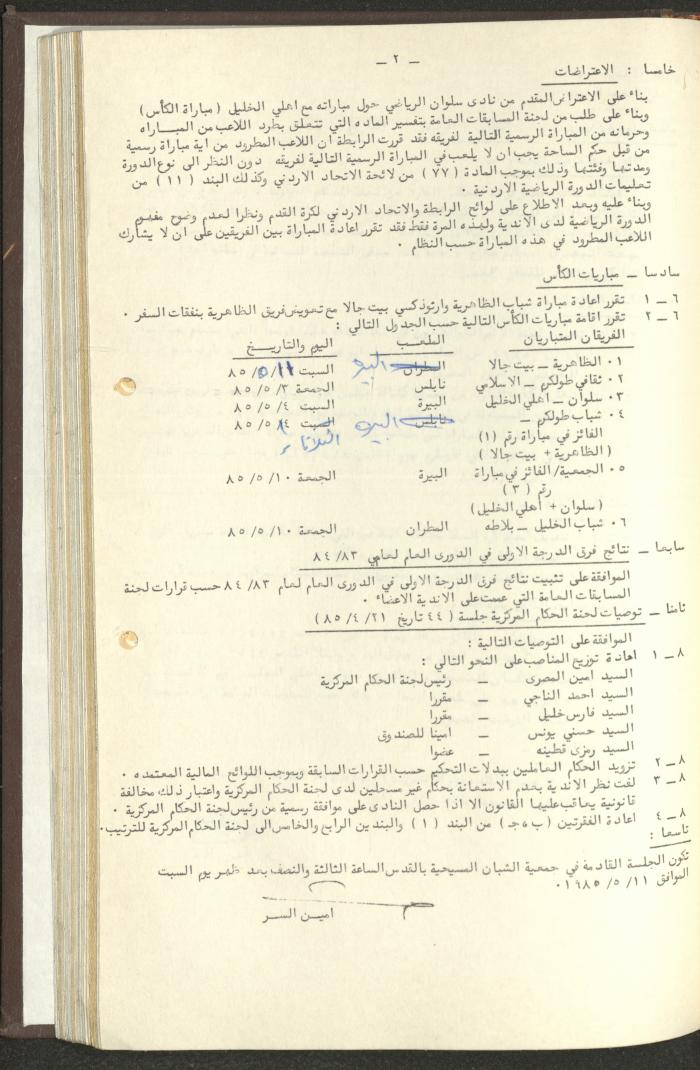 ـ ٢ ـ
خامسا : الاعتراضات
بناء على الاعتراض المقدم من نادى سلوان الرياضي حول مباراته مع اهلي الخليل ( مباراة الكأس )
وبناء على طلب من لجنة المسابقات العامة بتفسير الماده التي تتعلق بطرد اللاعب من المبـــاراه
وحرمانه من المباراة الرسمية التالية لفريقه فقد قررت الرابطة ان اللاعب المطرود من اية مباراة رسمية
من قبل حكم الساحة يجب ان لا يلعب في المباراة الرسمية التالية لفريقه دون النظر الى نوع الدورة
ومدتها وفئتها وذلك بموجب المادة ( ٧٧ ) من لائحة الاتحاد الاردني وكذلك البند ( ١١ ) من
تعليمات الدورة الرياضية الاردنية .
وبناء عليه وبعد الاطلاع على لوائح الرابطة والاتحاد الاردني لكرة القدم ونظرا لعدم وضوح مفهوم
الدورة الرياضية لدى الاندية ولهذه المرة فقط فقد تقرر اعادة المباراة بين الفريقين على ان لا يشارك
اللاعب المطرود في هذه المباراة حسب النظام .
سادسا ـ مباريات الكأس
٦ ـ ١ تقرر اعادة مباراة شباب الظاهرية وارثوذكسي بيت جالا مع تعويض فريق الظاهرية بنفقات السفر .
٦ ـ ٢ تقرر اقامة مباريات الكأس التالية حسب الجدول التالي :
الفريقان المتباريان الملعــب اليوم والتاريــخ
٠١ الظاهرية ـ بيت جالا المطران البيره السبت ١١/ ٥/ ٨٥
٠٢ ثقافي طولكرم ـ الاسلامي نابلس الجمعة ٣/ ٥/ ٨٥
٠٣ سلوان ـ اهلي الخليل البيرة السبت ٤/ ٥/ ٨٥
٠٤ شباب طولكرم ـ نابلس البيره السبت ٨٥/٥
الفائز في مباراة رقم (١) الثلاثاء
( الظاهرية + بيت جالا )
٠٥ الجمعية/ الفائز في مباراة البيرة الجمعة ١٠/ ٥/ ٨٥
رقم ( ٣ )
( سلوان + اهلي الخليل)
٠٦ شباب الخليل ـ بلاطه المطران الجمعة ١٠/ ٥/ ٨٥
سابعا ـ نتائج فرق الدرجة الاولى في الدورى العام لعامي ٨٣/ ٨٤
الموافقة على تثبيت نتائج فرق الدرجة الاولى في الدورى العام لعام ٨٣/ ٨٤ حسب قرارات لجنة
المسابقات العامة التي عممت على الاندية الاعضاء .
ثامنا ـ توصيات لجنة الحكام المركزية جلسة ( ٤٤ تاريخ ٢١/ ٤/ ٨٥ )
الموافقة على التوصيات التالية :
٨ ـ ١ اعادة توزيع المناصب على النحو التالي :
السيد امين المصرى ـ رئيس لجنة الحكام المركزية
السيد احمد الناجي ـ مقررا
السيد فارس خليل ـ مقررا
السيد حسني يونس ـ امينا للصندوق
السيد رمزى قطينه ـ عضوا
٨ ـ ٢ تزويد الحكام العاملين ببدلات التحكيم حسب القرارات السابقة وبموجب اللوائح المالية المعتمده .
٨ ـ ٣ لفت نظر الاندية بعدم الاستعانة بحكام غير مسجلين لدى لجنة الحكام المركزية واعتبار ذلك مخالفة
قانونية يعاقب عليها القانون الا اذا حصل النادى على موافقة رسمية من رئيس لجنة الحكام المركزية .
٨ ـ ٤ اعادة الفقرتين ( ب،ج ) من البند ( ١ ) والبندين الرابع والخامس الى لجنة الحكام المركزية للترتيب.
تاسعا :
تكون الجلسة القادمة في جمعية الشبان المسيحية بالقدس الساعة الثالثة والنصف بعد ظهر يوم السبت
الموافق ١١/ ٥/ ١٩٨٥.
اميــن الســر